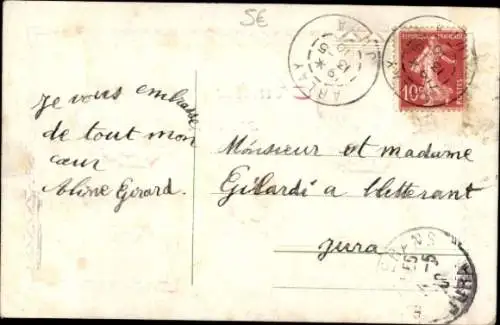 5€
ARLAY
JURA
RÉPUBLIQUE FRANÇAISE
10c
POSTES
Je vous embrasse
de tout mon
cœur
Aline Girard.
Monsieur et madame
Gilardi a bletterant
Jura
JURA